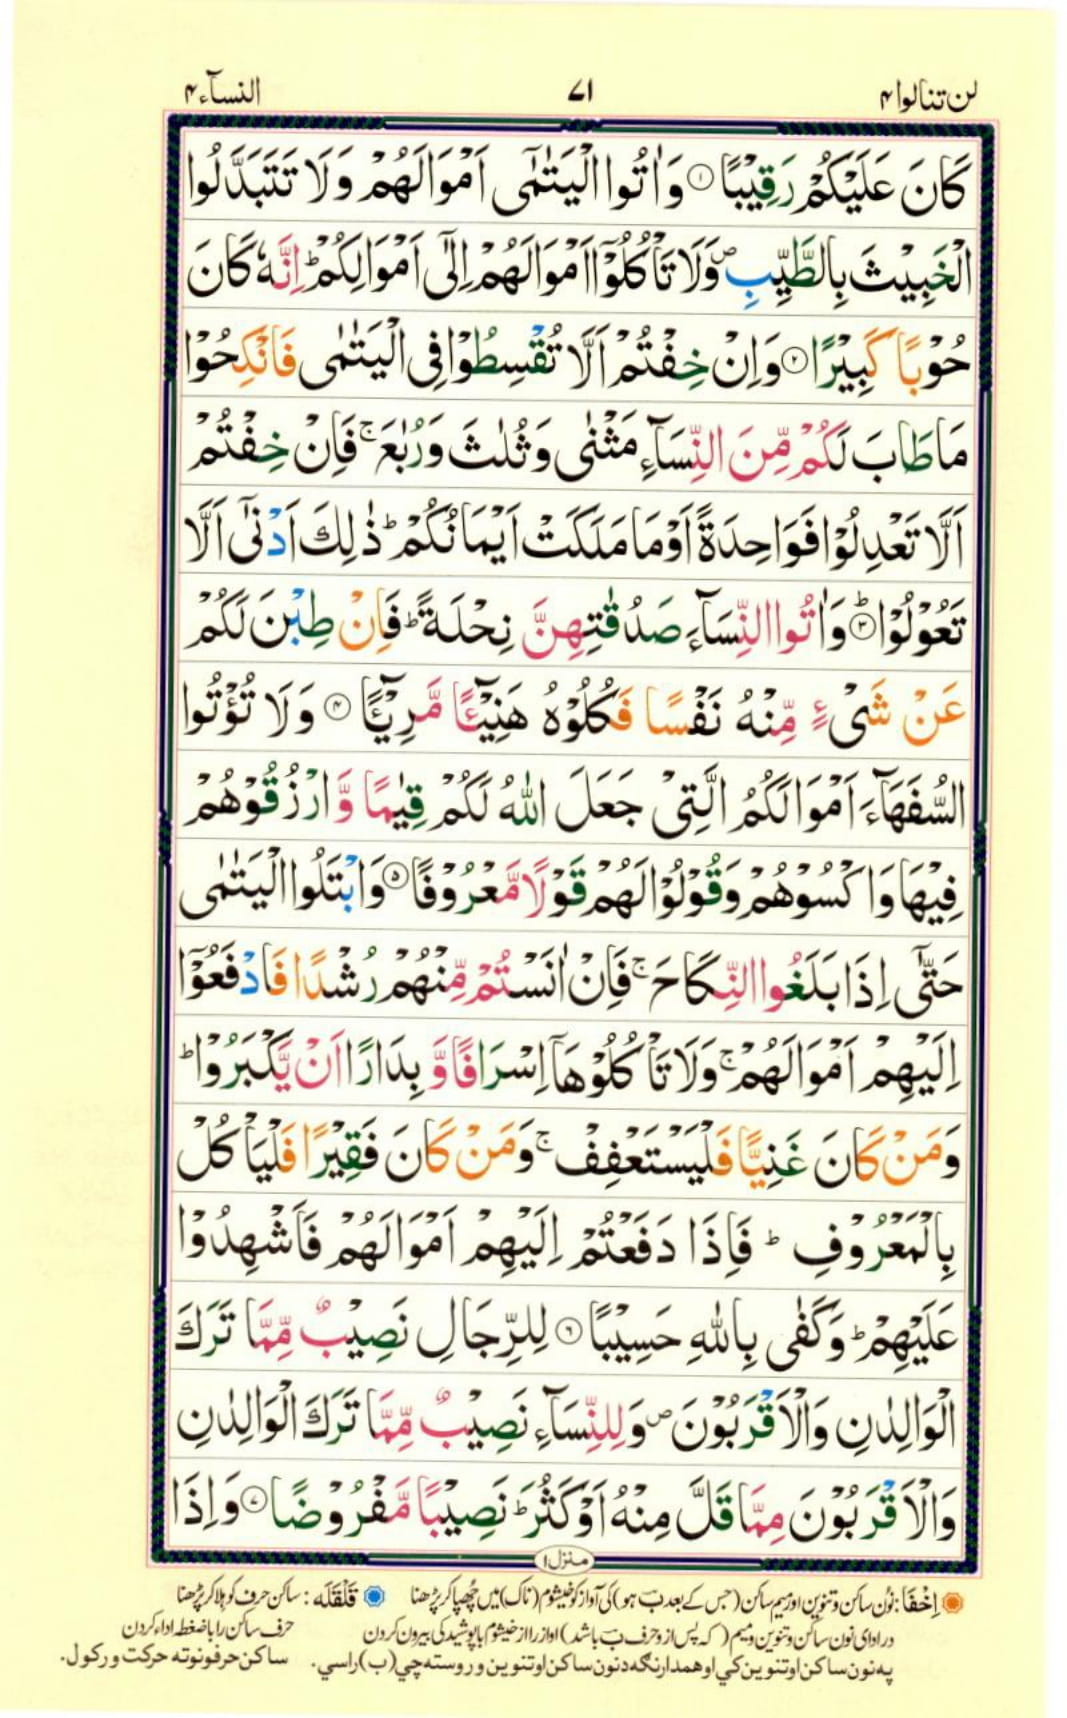 لن تنالوا ۴ ۷۱ النسآء ۴
كَانَ عَلَيْكُمْ رَقِيْبًا ۝۱ وَاٰتُوا الْيَتٰمٰۤى اَمْوَالَهُمْ وَلَا تَتَبَدَّلُوا
الْخَبِيْثَ بِالطَّيِّبِ ۪ وَلَا تَاْكُلُوْۤا اَمْوَالَهُمْ اِلٰۤى اَمْوَالِكُمْ ؕ اِنَّهٗ كَانَ
حُوْبًا كَبِيْرًا ۝۲ وَاِنْ خِفْتُمْ اَلَّا تُقْسِطُوْا فِى الْيَتٰمٰى فَانْكِحُوْا
مَا طَابَ لَكُمْ مِّنَ النِّسَآءِ مَثْنٰى وَثُلٰثَ وَرُبٰعَ ۚ فَاِنْ خِفْتُمْ
اَلَّا تَعْدِلُوْا فَوَاحِدَةً اَوْ مَا مَلَكَتْ اَيْمَانُكُمْ ؕ ذٰلِكَ اَدْنٰۤى اَلَّا
تَعُوْلُوْا ؕ ۝۳ وَاٰتُوا النِّسَآءَ صَدُقٰتِهِنَّ نِحْلَةً ؕ فَاِنْ طِبْنَ لَكُمْ
عَنْ شَىْءٍ مِّنْهُ نَفْسًا فَكُلُوْهُ هَنِيْٓئًا مَّرِيْٓئًا ۝۴ وَلَا تُؤْتُوا
السُّفَهَآءَ اَمْوَالَكُمُ الَّتِىْ جَعَلَ اللّٰهُ لَكُمْ قِيٰمًا وَّارْزُقُوْهُمْ
فِيْهَا وَاكْسُوْهُمْ وَقُوْلُوْا لَهُمْ قَوْلًا مَّعْرُوْفًا ۝۵ وَابْتَلُوا الْيَتٰمٰى
حَتّٰۤى اِذَا بَلَغُوا النِّكَاحَ ۚ فَاِنْ اٰنَسْتُمْ مِّنْهُمْ رُشْدًا فَادْفَعُوْۤا
اِلَيْهِمْ اَمْوَالَهُمْ ۚ وَلَا تَاْكُلُوْهَاۤ اِسْرَافًا وَّبِدَارًا اَنْ يَّكْبَرُوْا ؕ
وَمَنْ كَانَ غَنِيًّا فَلْيَسْتَعْفِفْ ۚ وَمَنْ كَانَ فَقِيْرًا فَلْيَاْكُلْ
بِالْمَعْرُوْفِ ؕ فَاِذَا دَفَعْتُمْ اِلَيْهِمْ اَمْوَالَهُمْ فَاَشْهِدُوْا
عَلَيْهِمْ ؕ وَكَفٰى بِاللّٰهِ حَسِيْبًا ۝۶ لِلرِّجَالِ نَصِيْبٌ مِّمَّا تَرَكَ
الْوَالِدٰنِ وَالْاَقْرَبُوْنَ ۪ وَلِلنِّسَآءِ نَصِيْبٌ مِّمَّا تَرَكَ الْوَالِدٰنِ
وَالْاَقْرَبُوْنَ مِمَّا قَلَّ مِنْهُ اَوْ كَثُرَ ؕ نَصِيْبًا مَّفْرُوْضًا ۝۷ وَاِذَا
منزل ۱
اِخْفَا: نُون ساکن و تنوین اور میم ساکن (جس کے بعد ب ہو) کی آواز کو خیشوم (ناک) میں چُھپا کر پڑھنا قَلْقَلَه: ساکن حرف کو ہلا کر پڑھنا
در ادای نون ساکن و تنوین و میم (که پس از و حرف ب باشد) آواز را از خیشوم با پوشیدگی بیرون کردن حرف ساکن را با ضغط اداء کردن
په نون ساکن او تنوین کي او همدارنگه د نون ساکن او تنوین و روسته چي (ب) راسي. ساکن حرفونو ته حرکت ورکول.